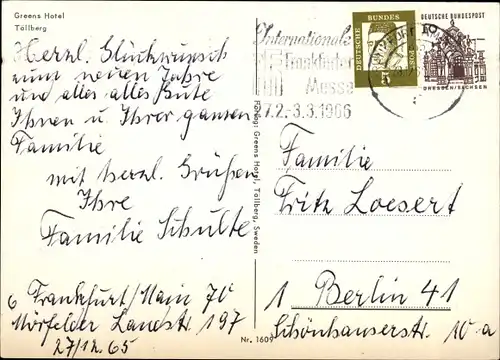 Greens Hotel
Tällberg
Herzl. Glückwunsch
zum neuen Jahre
und alles alles Gute
Ihnen u. Ihrer ganzen
Familie
mit herzl. Grüßen
Ihre
Familie Schulte
6 Frankfurt/Main 70
Mörfelder Landstr. 197
27/12. 65
Förlag: Greens Hotel, Tällberg, Sweden
Nr. 1609
Internationale
Frankfurter
Messe
27.2.-3.3.1966
DEUTSCHE BUNDESPOST
5
DEUTSCHE BUNDESPOST
DRESDEN/SACHSEN
Familie
Fritz Loesert
1 Berlin 41
Schönhauserstr. 10a